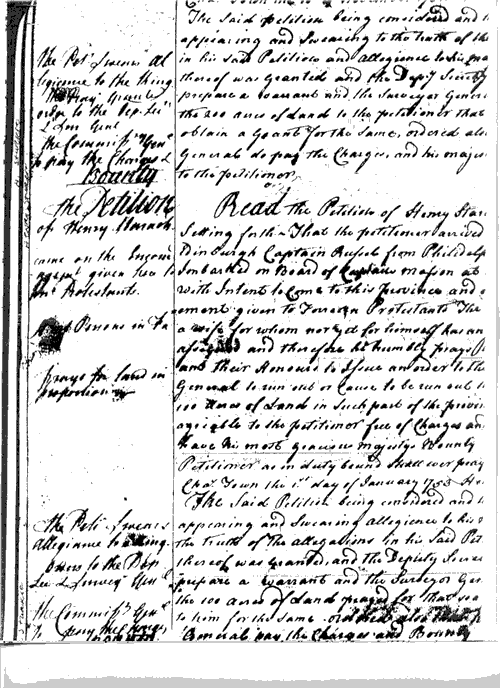 The Said Petition being considered and
appearing and Swearing to the truth of the
in his Said Petition and allegiance to his ma
thereof was Granted and the Depty Secretary
prepare a warrant and the Surveyor General
the 200 acres of Land to the petitioner that
obtain a Grant for the same, ordered also
General do pay the Charges, and his majes
to the petitioner
the Pet Swears al
legiance to the King
order to the Dep. Sec
& Surv Genl
the Commissry Genl
to pay the Charges &
Bounty
the Petition
of Henry
came on the Encour
agement given her to
Protestants
Persons in Fa
prays for land in
proportion
Read the Petition of Henry
Setting forth That the petitioner arrived
Edinburgh Captain Russel from Philidelp
Imbarked on Board of Captain mason at
with Intent to Come to this province and
ement given to Forreign Protestants The
a wife for whom nor yet for himself has an
and therefore he humbly prays
and their Honours to Issue an order to the
General to run out or Cause to be run out to
100 Acres of Land in Such part of the provin
agreable to the petitioner free of Charges and
have his most gracious majestys Bounty
Petitioner as in duty bound Shall ever pray
Chas Town the 1st day of January 1753
The Said Petition being considered and
appearing and Swearing allegiance to his
the truth of the allegations in his Said Pet
thereof was Granted, and the Deputy Secre
prepare a warrant and the Surveyor Gen
the 100 acres of Land prayed for that
to him for the same ordered also that
General pay the Charges and Bounty
the Peti Swears
allegiance to King
orders to the Dep
Sec & Survey Genl
the Commissy Genl
to pay the Charges